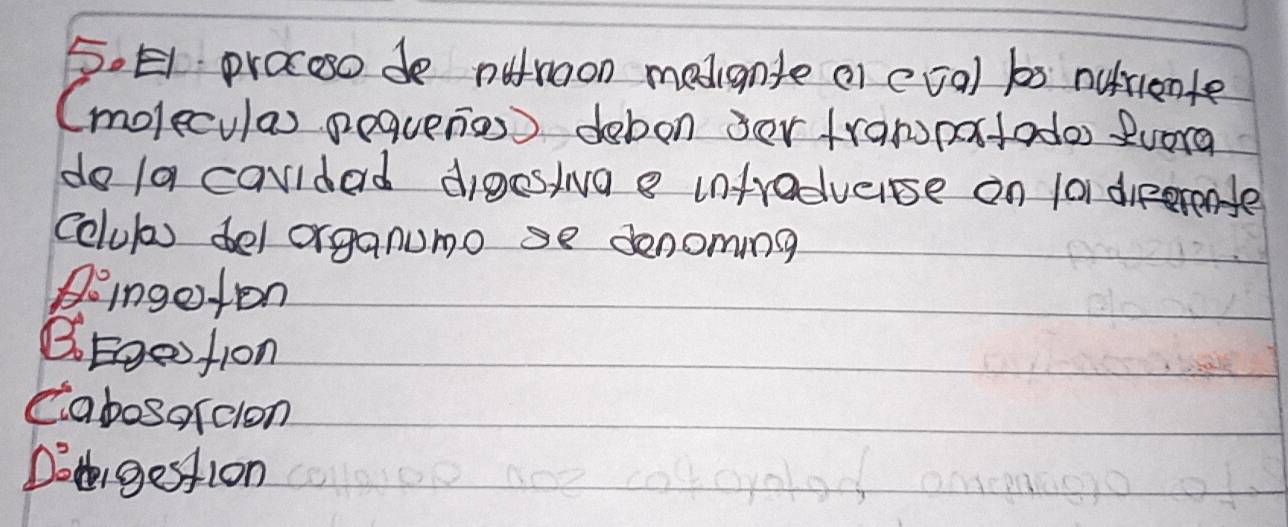 5. El proceso de nutricion mediante el cual los nutriente
(moleculas pequeñas) deben ser transportados fuera
de la cavidad digestiva e introducirse en las diferente
celulas del organismo se denomina
A. ingestion
B. Egestion
C. abosorcion
D. digestion